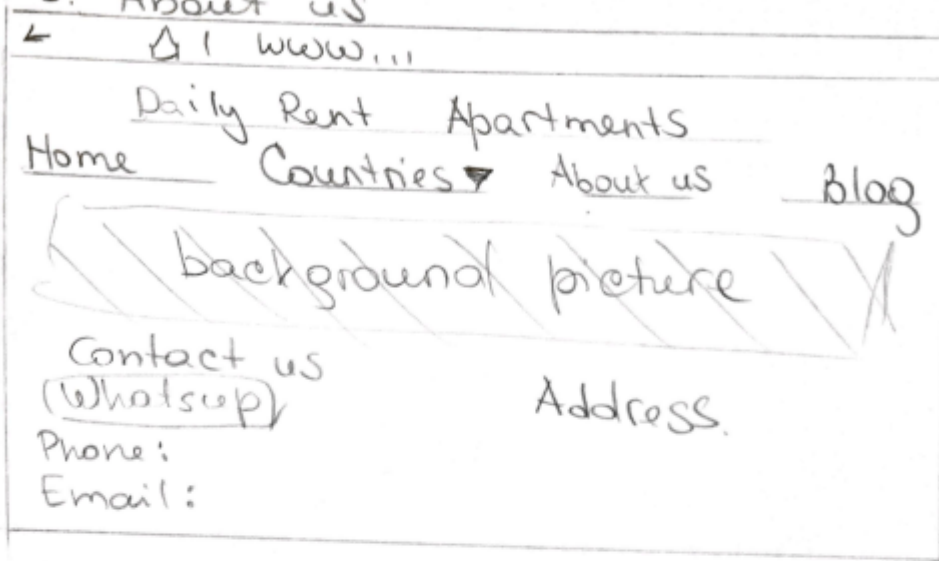 About us
www...
Daily Rent Apartments
Home Countries▼ About us Blog
background picture
Contact us
Whatsup Address.
Phone:
Email: